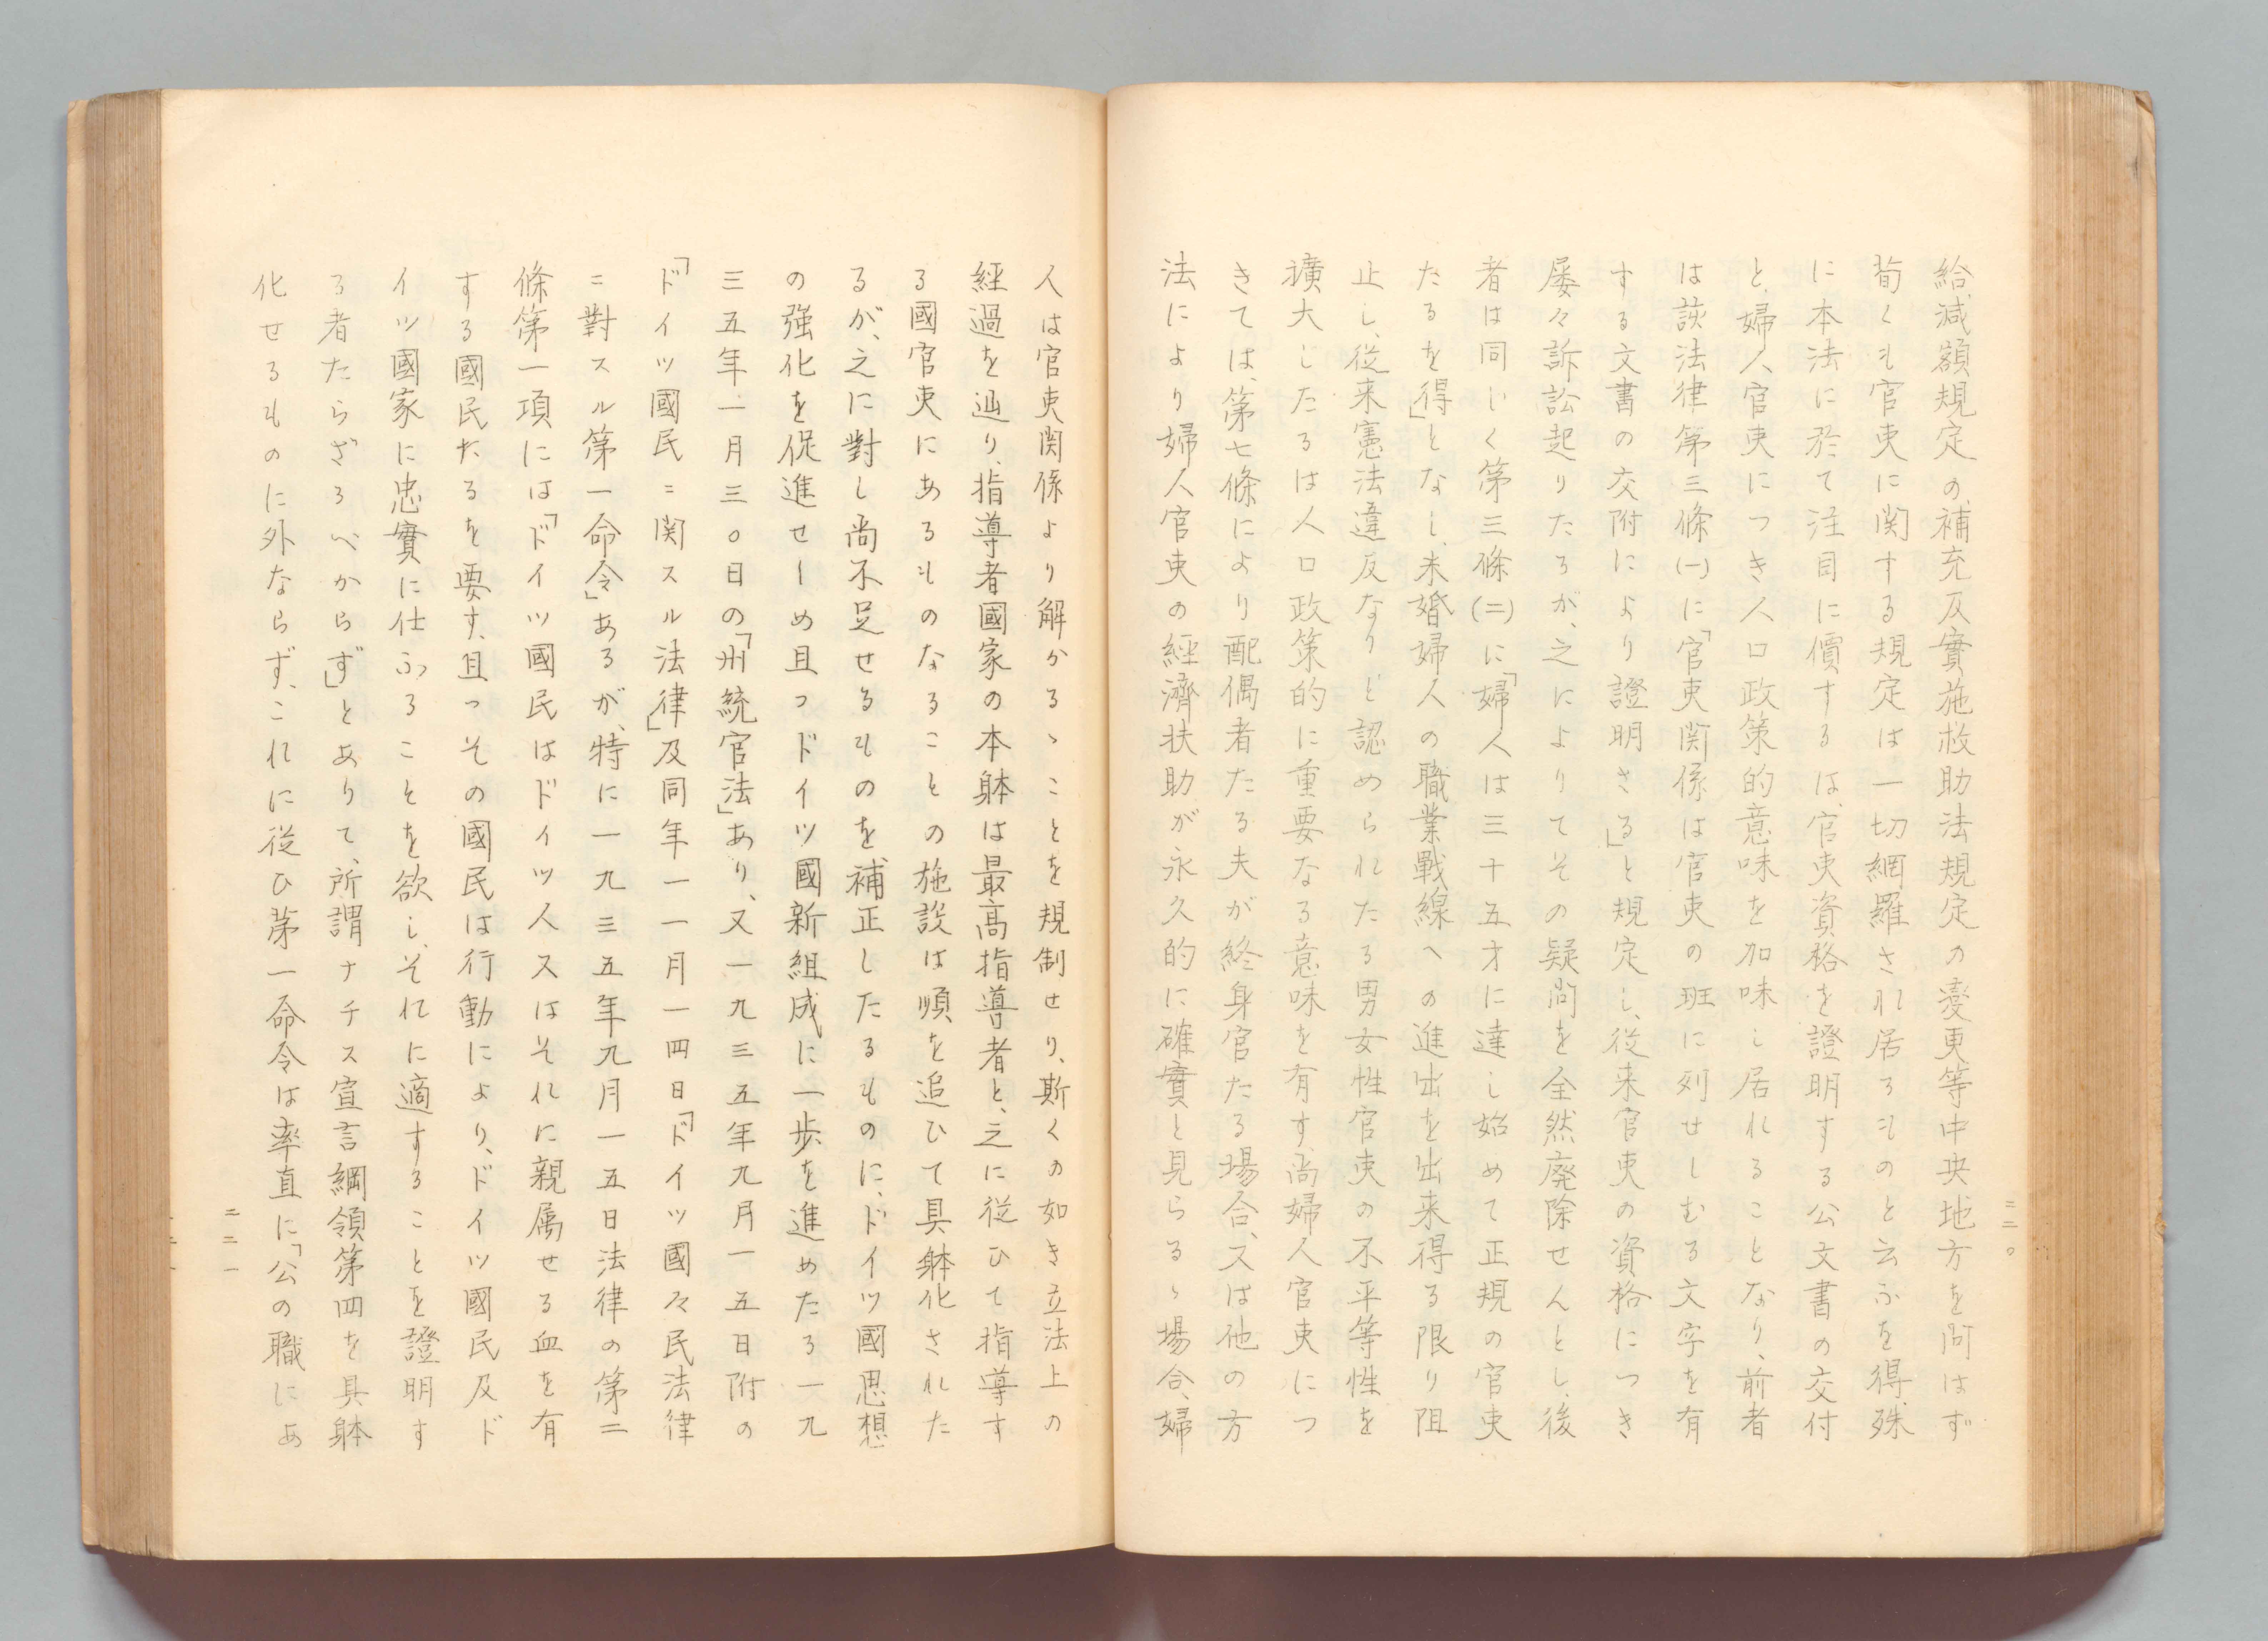 給減額規定の補充及實施救助法規定の變更等中央地方を問はず
荀くも官吏に関する規定は一切網羅され居るものと云ふを得、殊
に本法に於て注目に價するは、官吏資格を證明する公文書の交付
と、婦人官吏につき人口政策的意味を加味し居れることなり、前者
は該法律第三條(一)に「官吏関係は官吏の班に列せしむる文字を有
する文書の交附により證明さる」と規定し、従来官吏の資格につき
屡々訴訟起りたるが、之によりてその疑问を全然廃除せんとし、後
者は同じく第三條(二)に「婦人は三十五才に達し始めて正規の官吏
たるを得」となし、未婚婦人の職業戰線への進出を出来得る限り阻
止し、従来憲法違反なりと認められたる男女性官吏の不平等性を
擴大じたるは人口政策的に重要なる意味を有す、尚婦人官吏につ
きては、第七條により配偶者たる夫が終身官たる場合、又は他の方
法により婦人官吏の經濟扶助が永久的に確實と見らるゝ場合、婦
三二〇
人は官吏関係より解かるゝことを規制せり、斯くの如き立法上の
経過を辿り、指導者國家の本躰は最高指導者と、之に従ひて指導す
る國官吏にあるものなることの施設は順を追ひて具躰化された
るが、之に對し尚不足せるものを補正したるものに、ドイツ國思想
の強化を促進せしめ且つドイツ國新組成に一歩を進めたる一九
三五年一月三〇日の「州統官法」あり、又一九三五年九月一五日附の
「ドイツ國民ニ関スル法律」及同年一一月一四日「ドイツ國々民法律
ニ對スル第一命令」あるが、特に一九三五年九月一五日法律の第二
條第一項には「ドイツ國民はドイツ人又はそれに親属せる血を有
する國民たるを要す、且つその國民は行動により、ドイツ國民及ド
イツ國家に忠實に仕ふることを欲し、それに適することを證明す
る者たらざるべからず」とありて、所謂ナチス宣言綱領第四を具躰
化せるものに外ならず、これに従ひ第一命令は率直に「公の職にあ
三二一